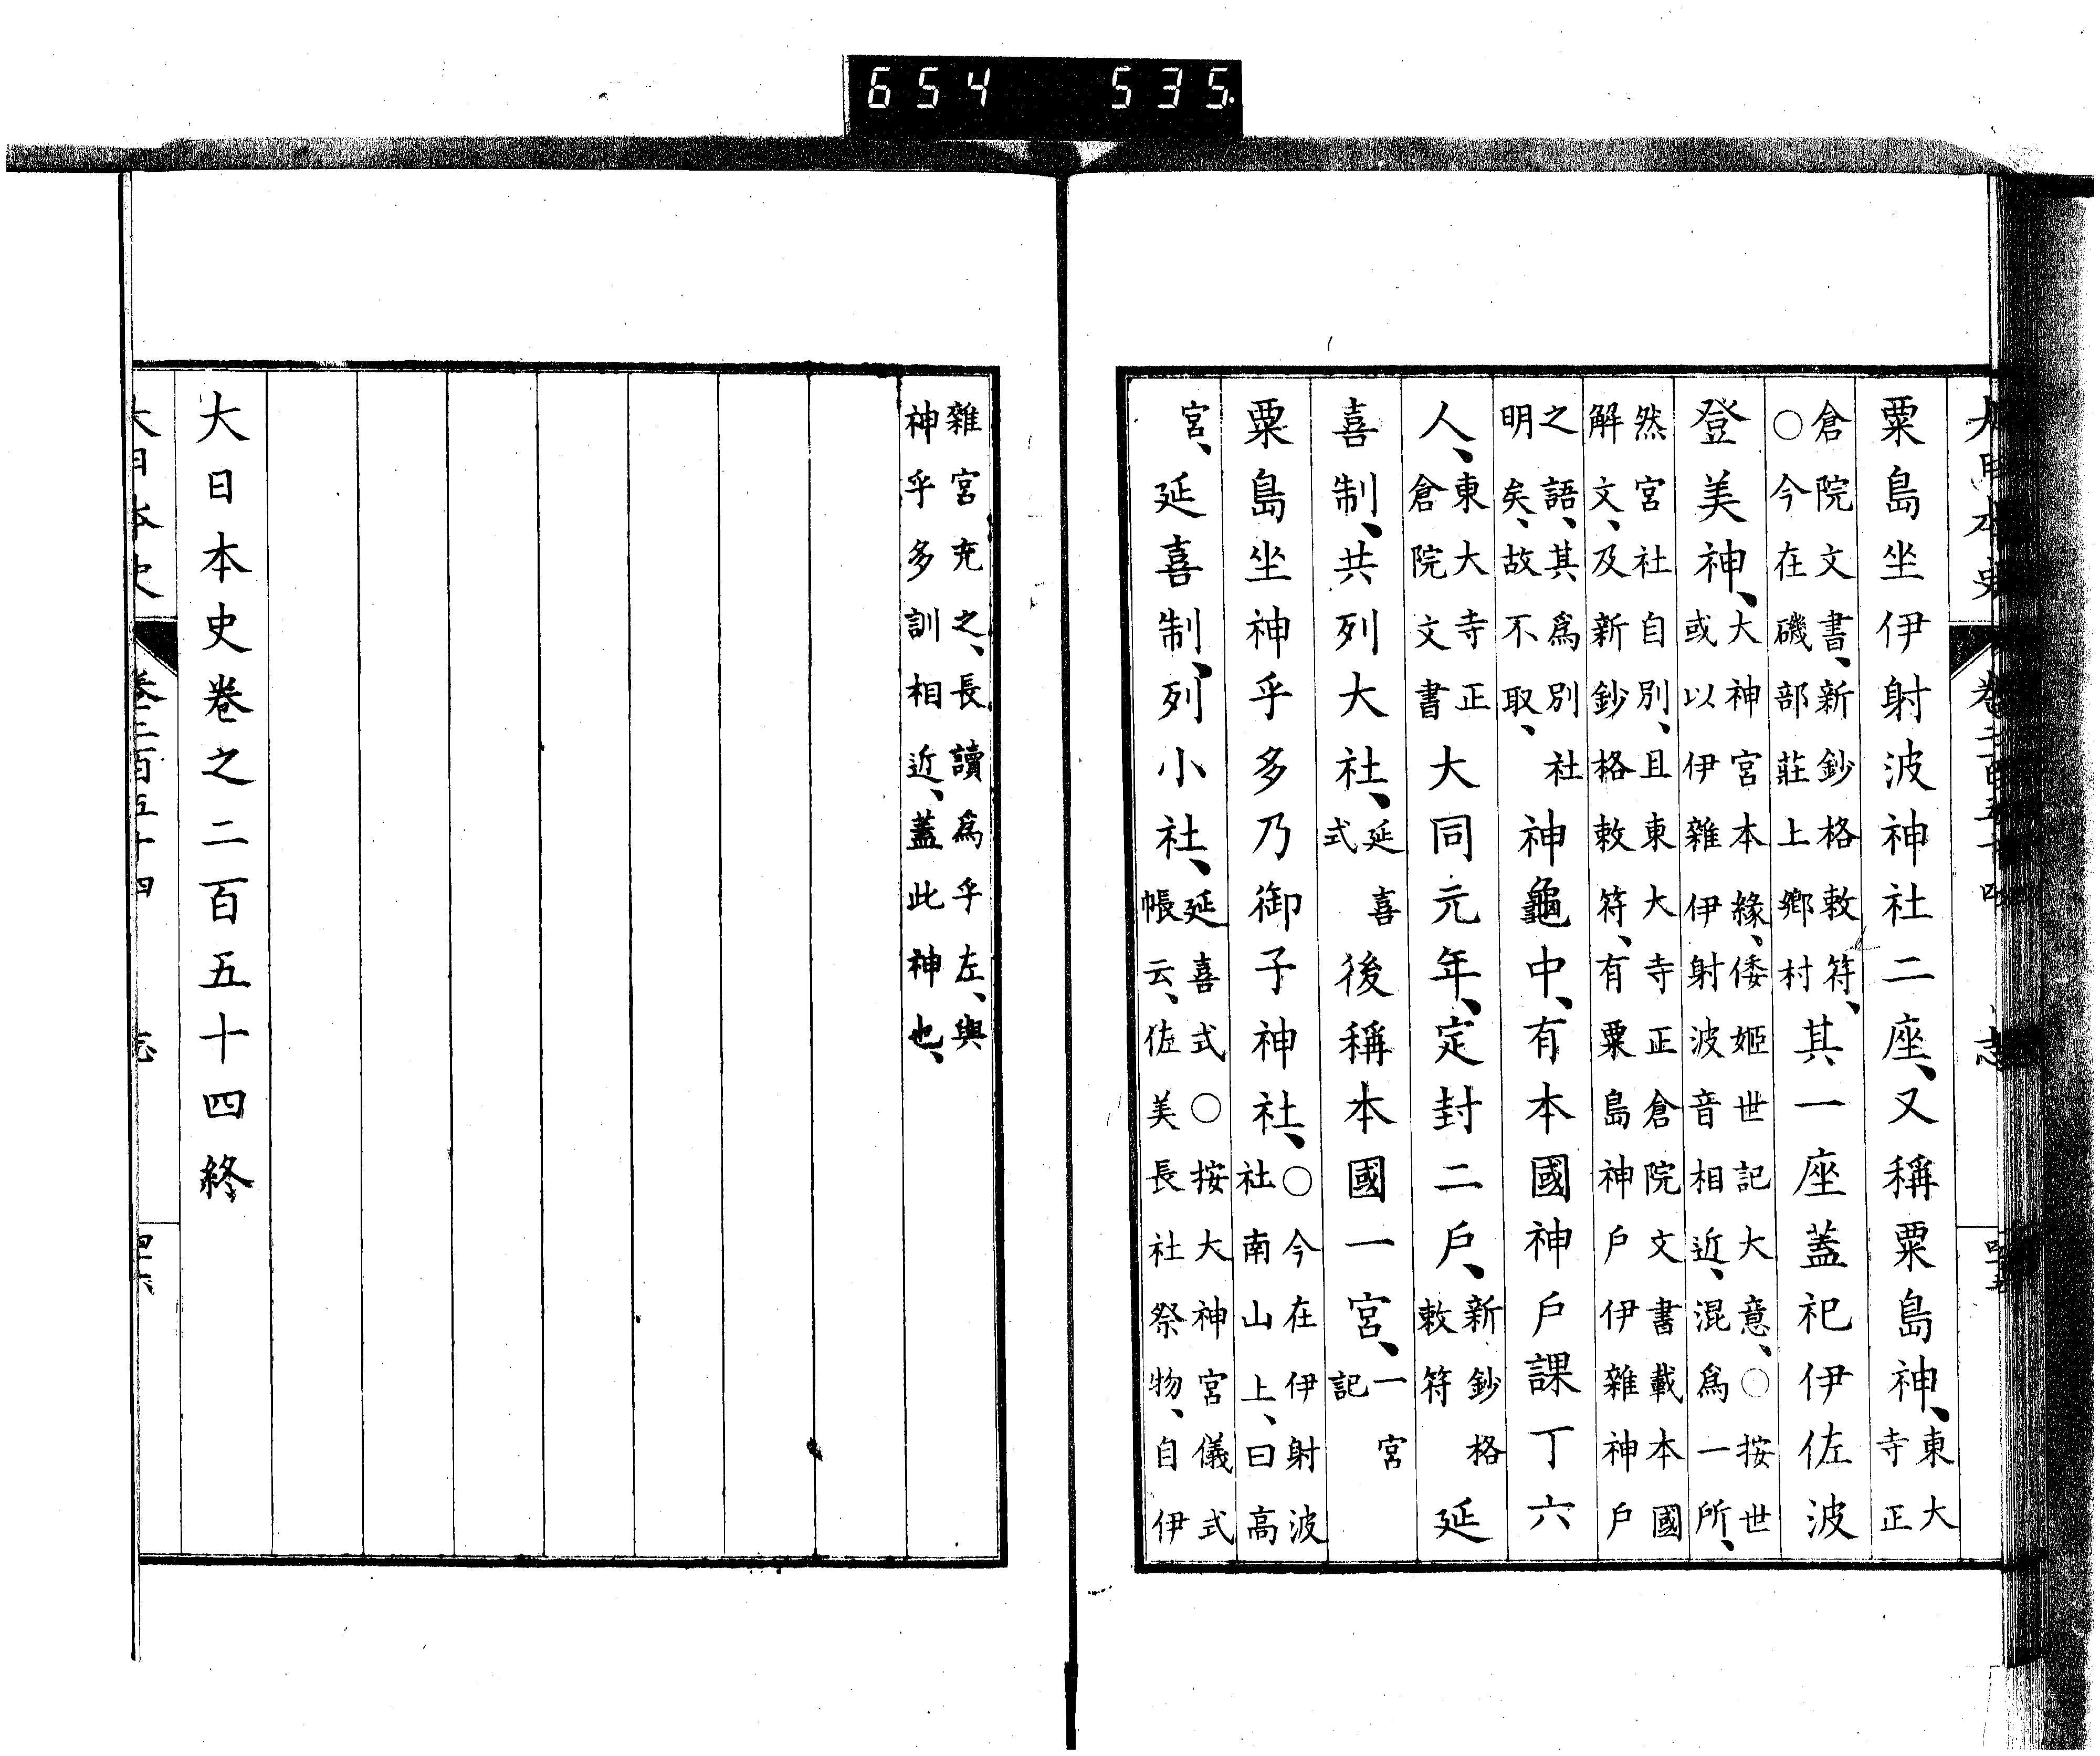 654 535.
大日本史 卷二百五十四 志 四十五
粟島坐伊射波神社二座、又稱粟島神、東大
寺正
倉院文書、新鈔格敕符、
○今在磯部莊上鄉村其一座蓋祀伊佐波
登美神、大神宮本緣、倭姬世記大意、○按世
或以伊雜伊射波音相近、混爲一所、
然宮社自別、且東大寺正倉院文書載本國
解文、及新鈔格敕符、有粟島神戶伊雜神戶
之語、其爲別社
明矣、故不取、神龜中、有本國神戶課丁六
人、東大寺正
倉院文書大同元年、定封二戶、新鈔格
敕符延
喜制、共列大社、延喜
式後稱本國一宮、一宮
記
粟島坐神乎多乃御子神社、○今在伊射波
社南山上、曰高
宮、延喜制、列小社、延喜式○按大神宮儀式
帳云、佐美長社祭物、自伊
雜宮充之、長讀爲乎左、與
神乎多訓相近、蓋此神也、
大日本史卷之二百五十四終
大日本史 卷二百五十四 志 四十六